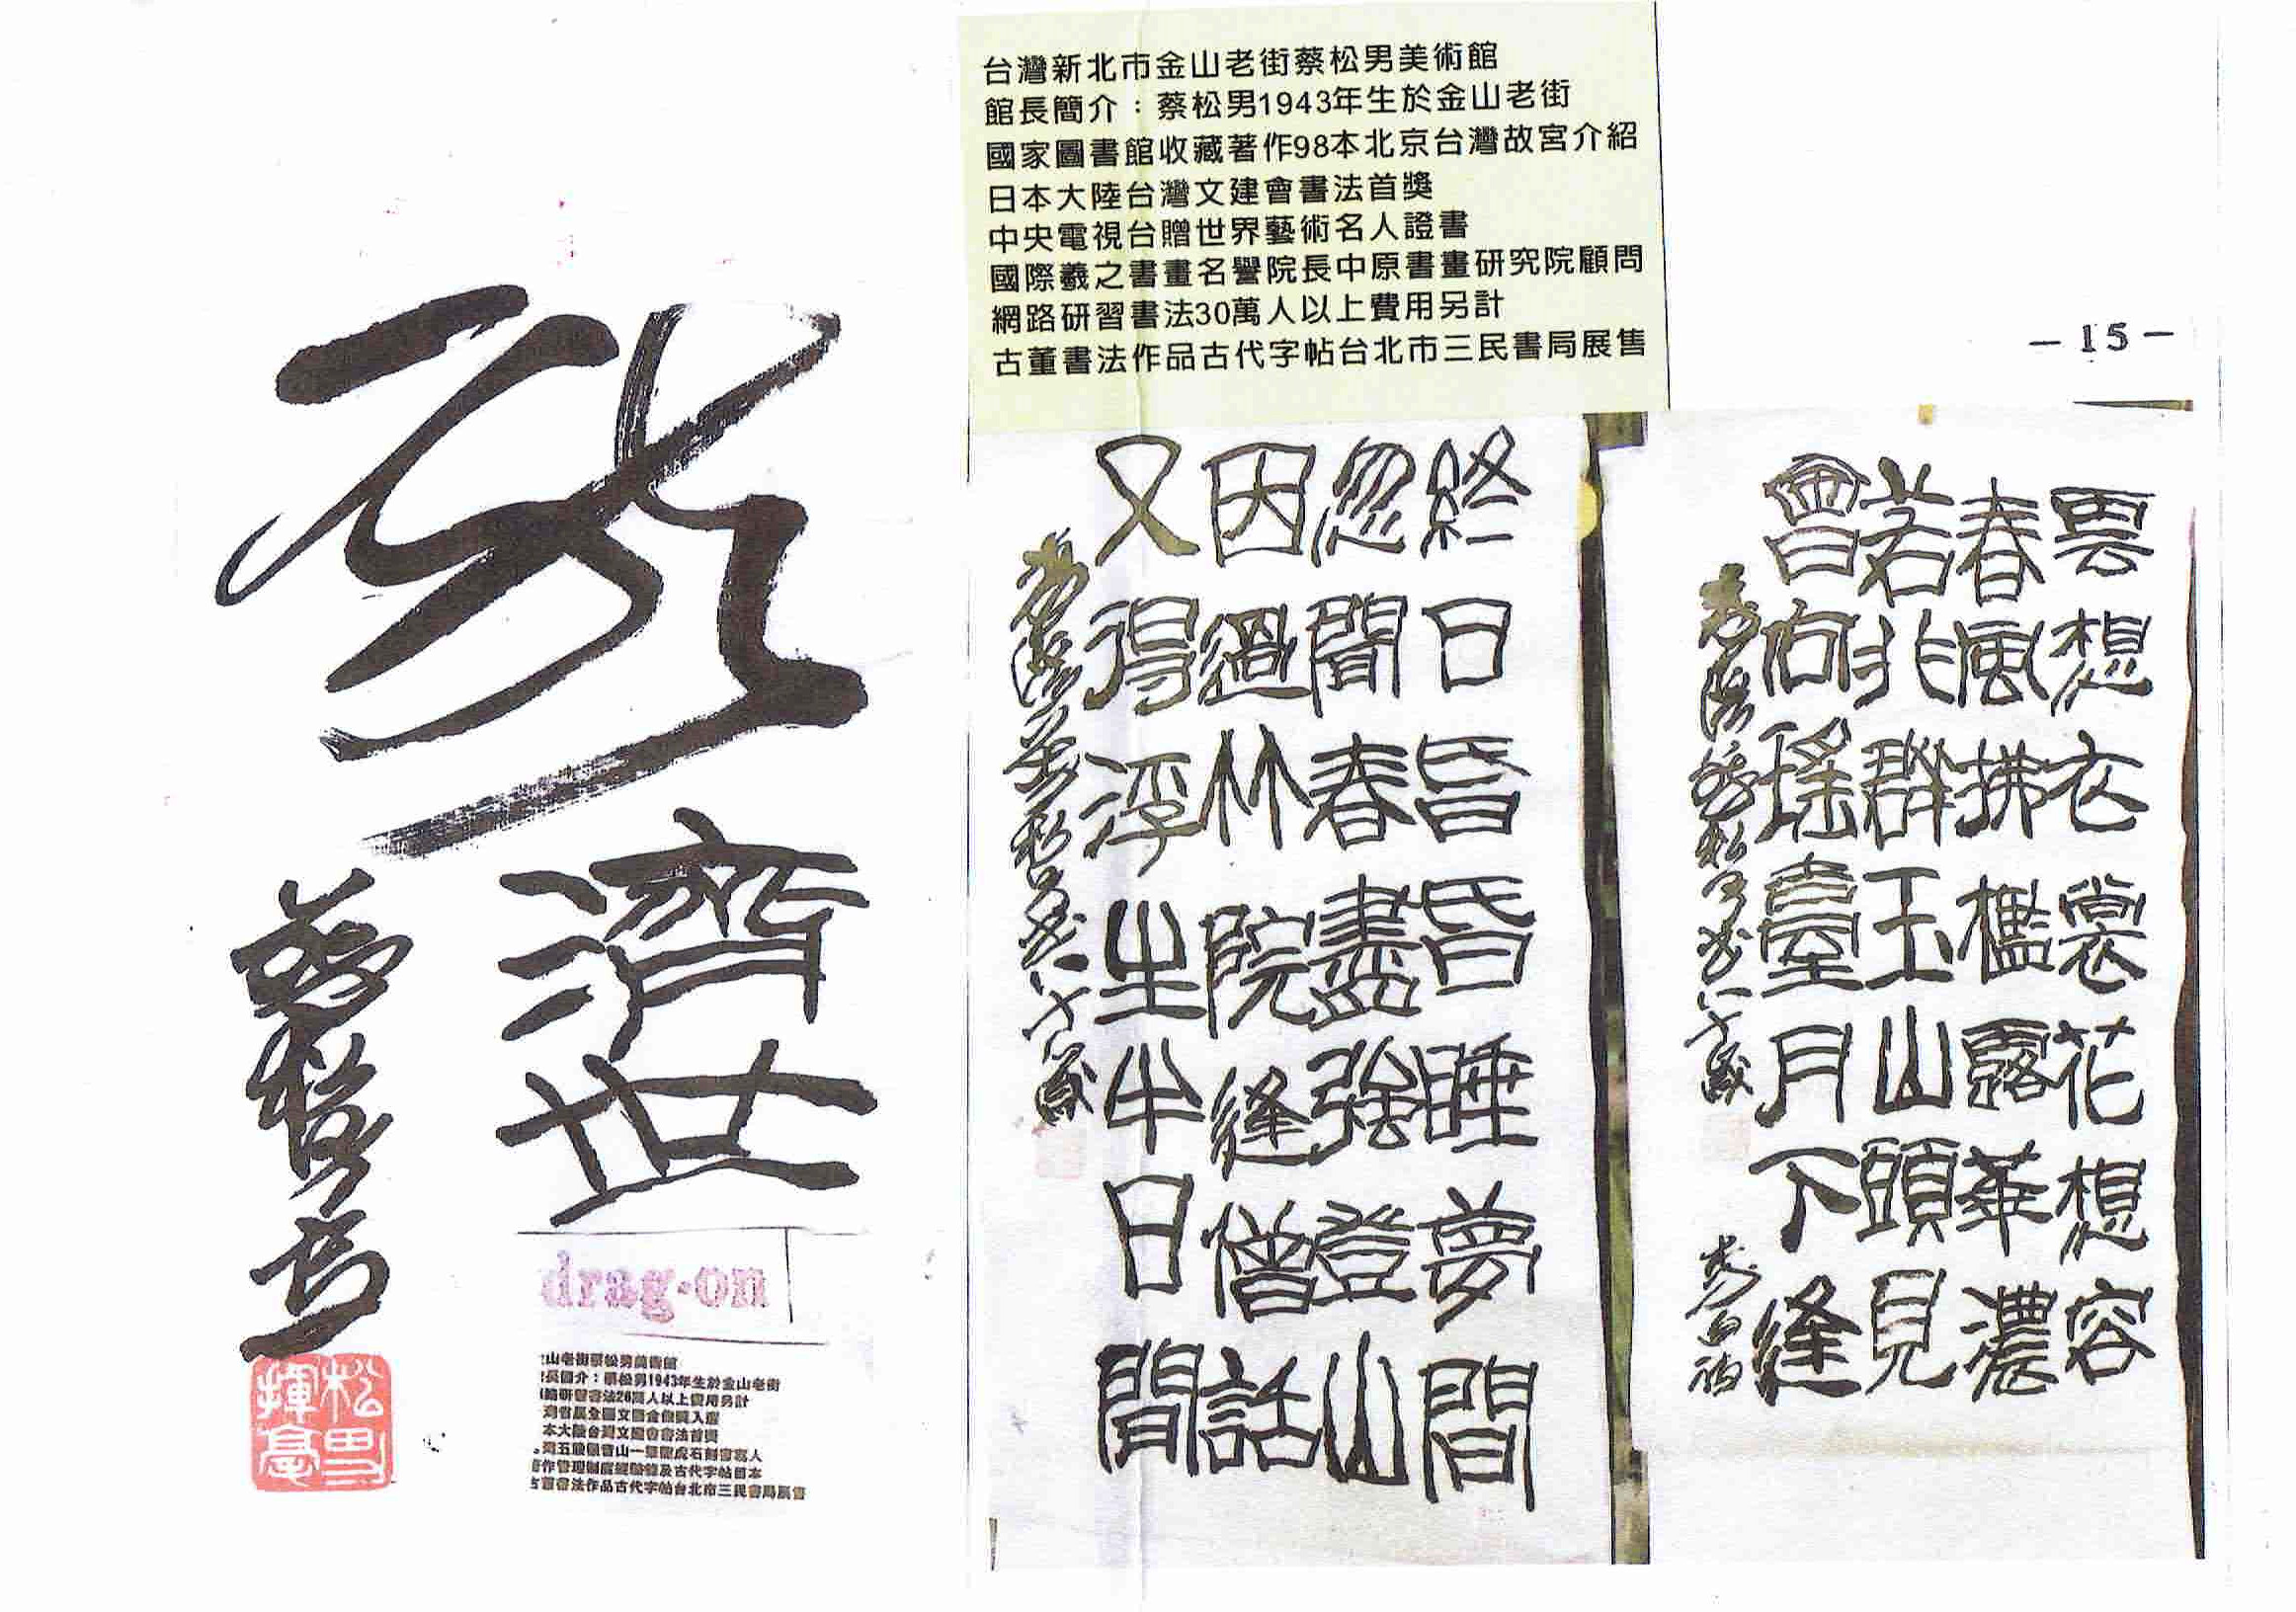 台灣新北市金山老街蔡松男美術館
館長簡介：蔡松男1943年生於金山老街
國家圖書館收藏著作98本北京台灣故宮介紹
日本大陸台灣文建會書法首獎
中央電視台贈世界藝術名人證書
國際羲之書畫名譽院長中原書畫研究院顧問
網路研習書法30萬人以上費用另計
古董書法作品古代字帖台北市三民書局展售
-15-
雲想衣裳花想容
春風拂檻露華濃
若非群玉山頭見
會向瑤臺月下逢
李白詩
蔡松男書八十歲
終日昏昏睡夢間
忽聞春盡強登山
因過竹院逢僧話
又得浮生半日閒
八十歲
龍
濟世
蔡松男書
松男揮毫
drag·on
山老街蔡松男美術館
長簡介：蔡松男1943年生於金山老街
研習書法20萬人以上費用另計
本大陸台灣文建會書法首獎
古董書法作品古代字帖台北市三民書局展售